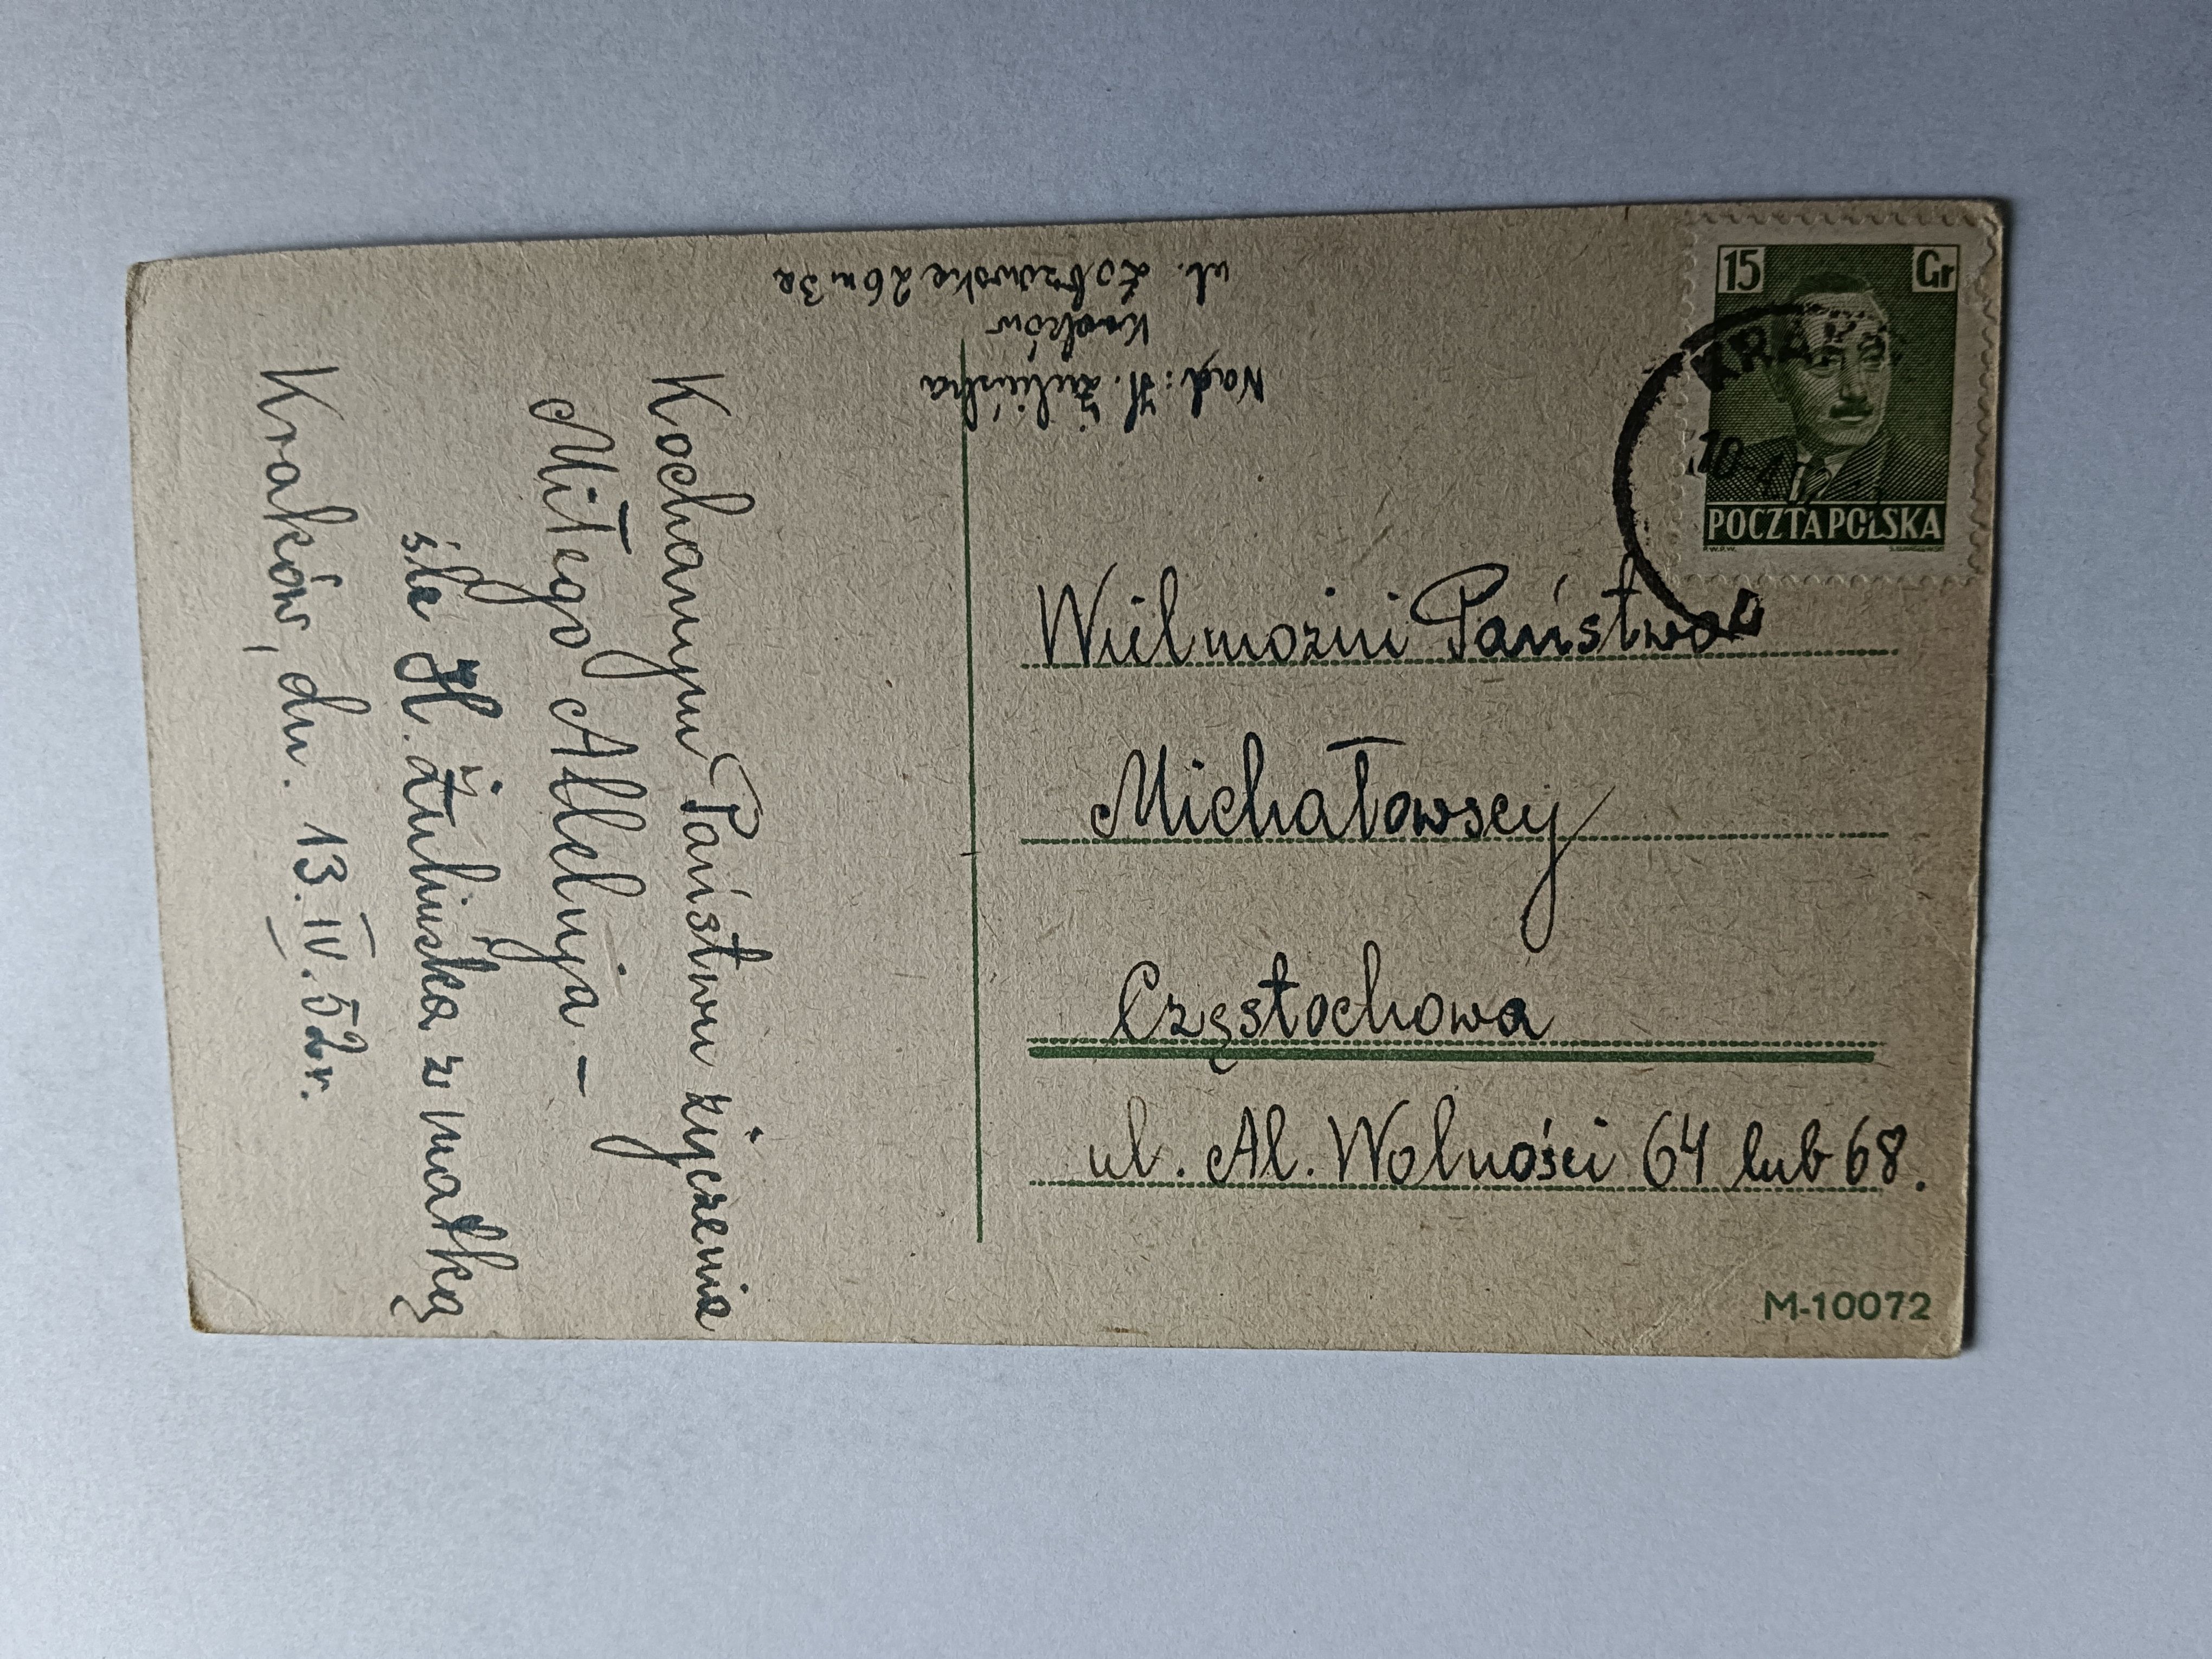 Kochanym Państwu życzenia
Miłego Alleluja –
śle H. Żulińska z matką
Kraków, dn. 13.IV.52r.
Nad: H. Żulińska
Kraków
ul. Łobzowska 26 m 3a
15 Gr
KRAK
10-4
POCZTA POLSKA
Wielmożni Państwo
Michałowscy
Częstochowa
ul. Al. Wolności 64 lub 68.
M-10072